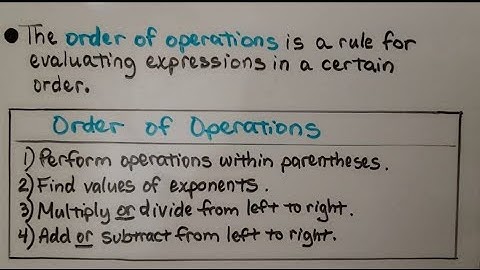 The order of operations is a rule for
evaluating expressions in a certain
order.
Order of Operations
1) Perform operations within parentheses.
2) Find values of exponents.
3) Multiply or divide from left to right.
4) Add or subtract from left to right.